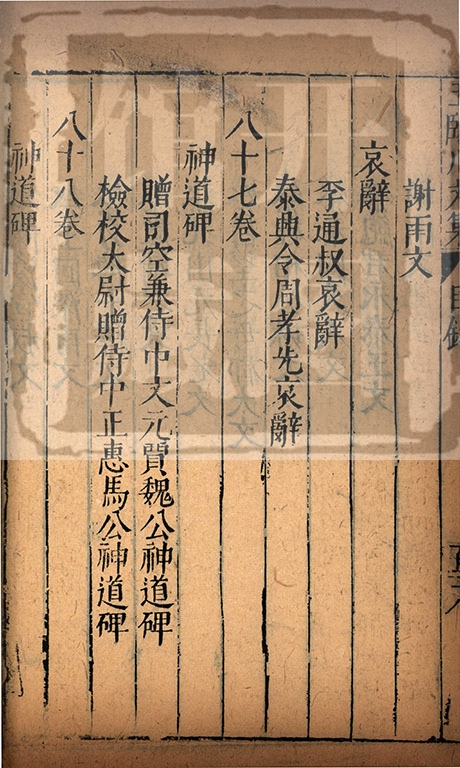 謝雨文
哀辭
李通叔哀辭
泰興令周孝先哀辭
八十七卷
神道碑
贈司空兼侍中文元賈魏公神道碑
檢校太尉贈侍中正惠馬公神道碑
八十八卷
神道碑